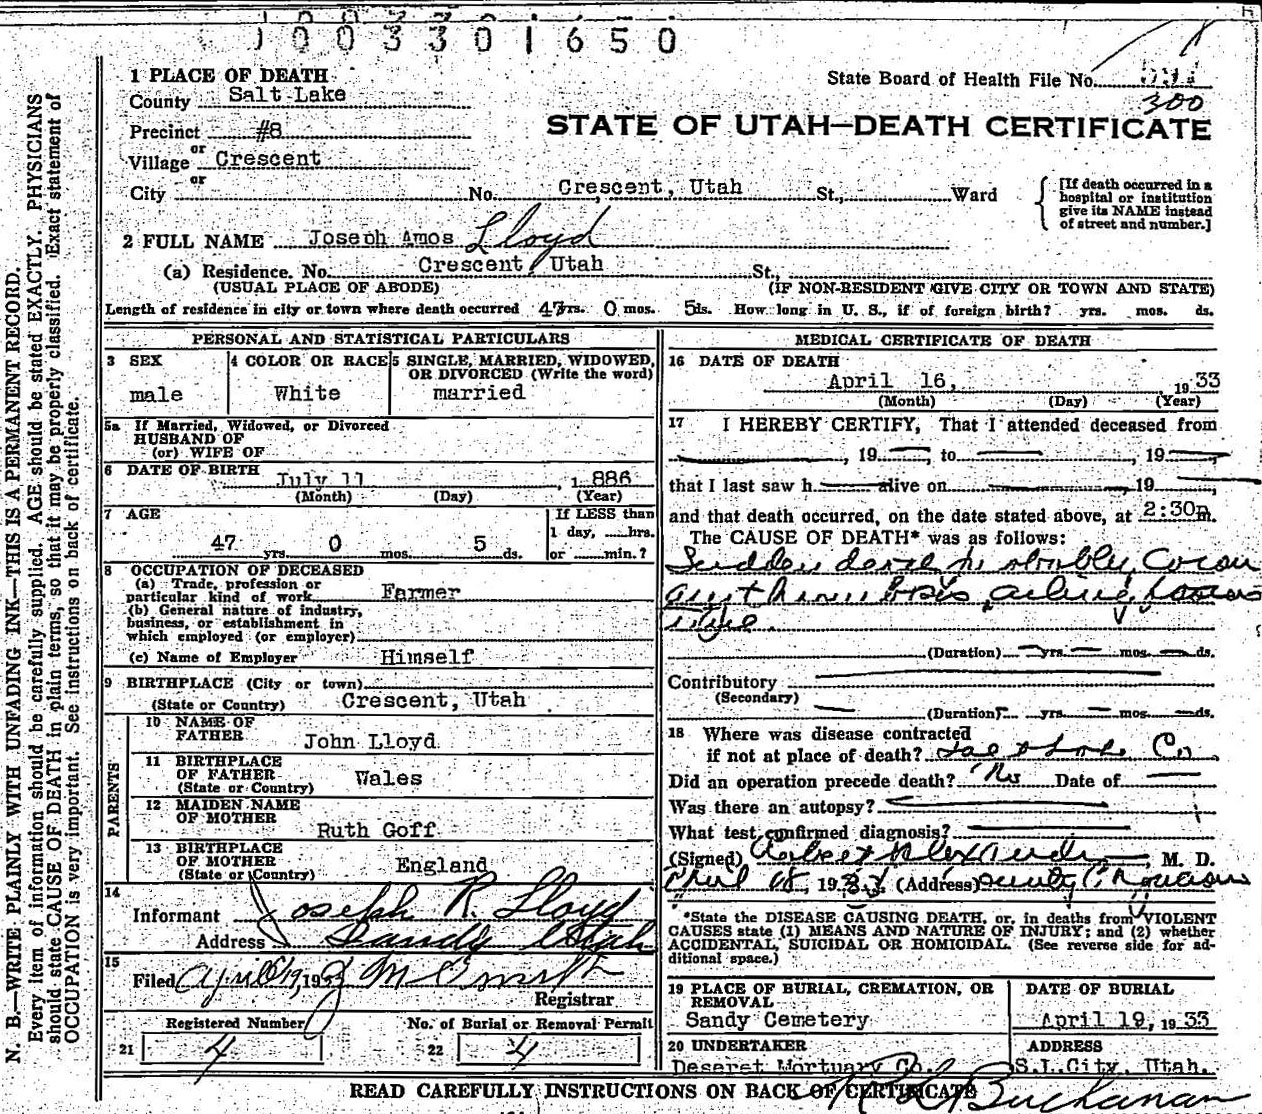 1003301650
1 PLACE OF DEATH
County Salt Lake
State Board of Health File No.
300
Precinct #8
or
Village Crescent
or
City No. Crescent, Utah St., Ward
STATE OF UTAH—DEATH CERTIFICATE
[If death occurred in a
hospital or institution
give its NAME instead
of street and number.]
2 FULL NAME Joseph Amos Lloyd
(a) Residence. No. Crescent, Utah St.,
(USUAL PLACE OF ABODE) (IF NON-RESIDENT GIVE CITY OR TOWN AND STATE)
Length of residence in city or town where death occurred 47 yrs. 0 mos. 5 ds. How long in U. S., if of foreign birth? yrs. mos. ds.
PERSONAL AND STATISTICAL PARTICULARS
3 SEX
male
4 COLOR OR RACE
White
5 SINGLE, MARRIED, WIDOWED,
OR DIVORCED (Write the word)
married
5a If Married, Widowed, or Divorced
HUSBAND OF
(or) WIFE OF
6 DATE OF BIRTH
July 11, 1886
(Month) (Day) (Year)
7 AGE
47 yrs. 0 mos. 5 ds.
If LESS than
1 day, hrs.
or min.?
8 OCCUPATION OF DECEASED
(a) Trade, profession or
particular kind of work Farmer
(b) General nature of industry,
business, or establishment in
which employed (or employer)
(c) Name of Employer Himself
9 BIRTHPLACE (City or town)
(State or Country) Crescent, Utah
PARENTS
10 NAME OF
FATHER
John Lloyd
11 BIRTHPLACE
OF FATHER
(State or Country)
Wales
12 MAIDEN NAME
OF MOTHER
Ruth Goff
13 BIRTHPLACE
OF MOTHER
(State or Country)
England
14
Informant Joseph R. Lloyd
Address Sandy Utah
15
Filed April 19, 1933
Registrar
Registered Number
21 4
No. of Burial or Removal Permit
22 4
MEDICAL CERTIFICATE OF DEATH
16 DATE OF DEATH
April 16, 1933
(Month) (Day) (Year)
17 I HEREBY CERTIFY, That I attended deceased from
, 19 , to , 19
that I last saw h alive on , 19 ,
and that death occurred, on the date stated above, at 2:30p m.
The CAUSE OF DEATH* was as follows:
Sudden death probably Coron
ary thrombosis
(Duration) yrs. mos. ds.
Contributory
(Secondary)
(Duration) yrs. mos. ds.
18 Where was disease contracted
if not at place of death? Salt Lake Co
Did an operation precede death? No Date of
Was there an autopsy?
What test confirmed diagnosis?
(Signed) Robert Alexander, M. D.
April 18, 1933 (Address)
*State the DISEASE CAUSING DEATH, or, in deaths from VIOLENT
CAUSES state (1) MEANS AND NATURE OF INJURY; and (2) whether
ACCIDENTAL, SUICIDAL OR HOMICIDAL. (See reverse side for ad-
ditional space.)
19 PLACE OF BURIAL, CREMATION, OR
REMOVAL
Sandy Cemetery
DATE OF BURIAL
April 19, 1933
20 UNDERTAKER
Deseret Mortuary Co.
ADDRESS
S.L.City, Utah.
Buchanan
READ CAREFULLY INSTRUCTIONS ON BACK OF CERTIFICATE
N. B.—WRITE PLAINLY WITH UNFADING INK—THIS IS A PERMANENT RECORD.
Every item of information should be carefully supplied. AGE should be stated EXACTLY. PHYSICIANS
should state CAUSE OF DEATH in plain terms, so that it may be properly classified. Exact statement of
OCCUPATION is very important. See instructions on back of certificate.